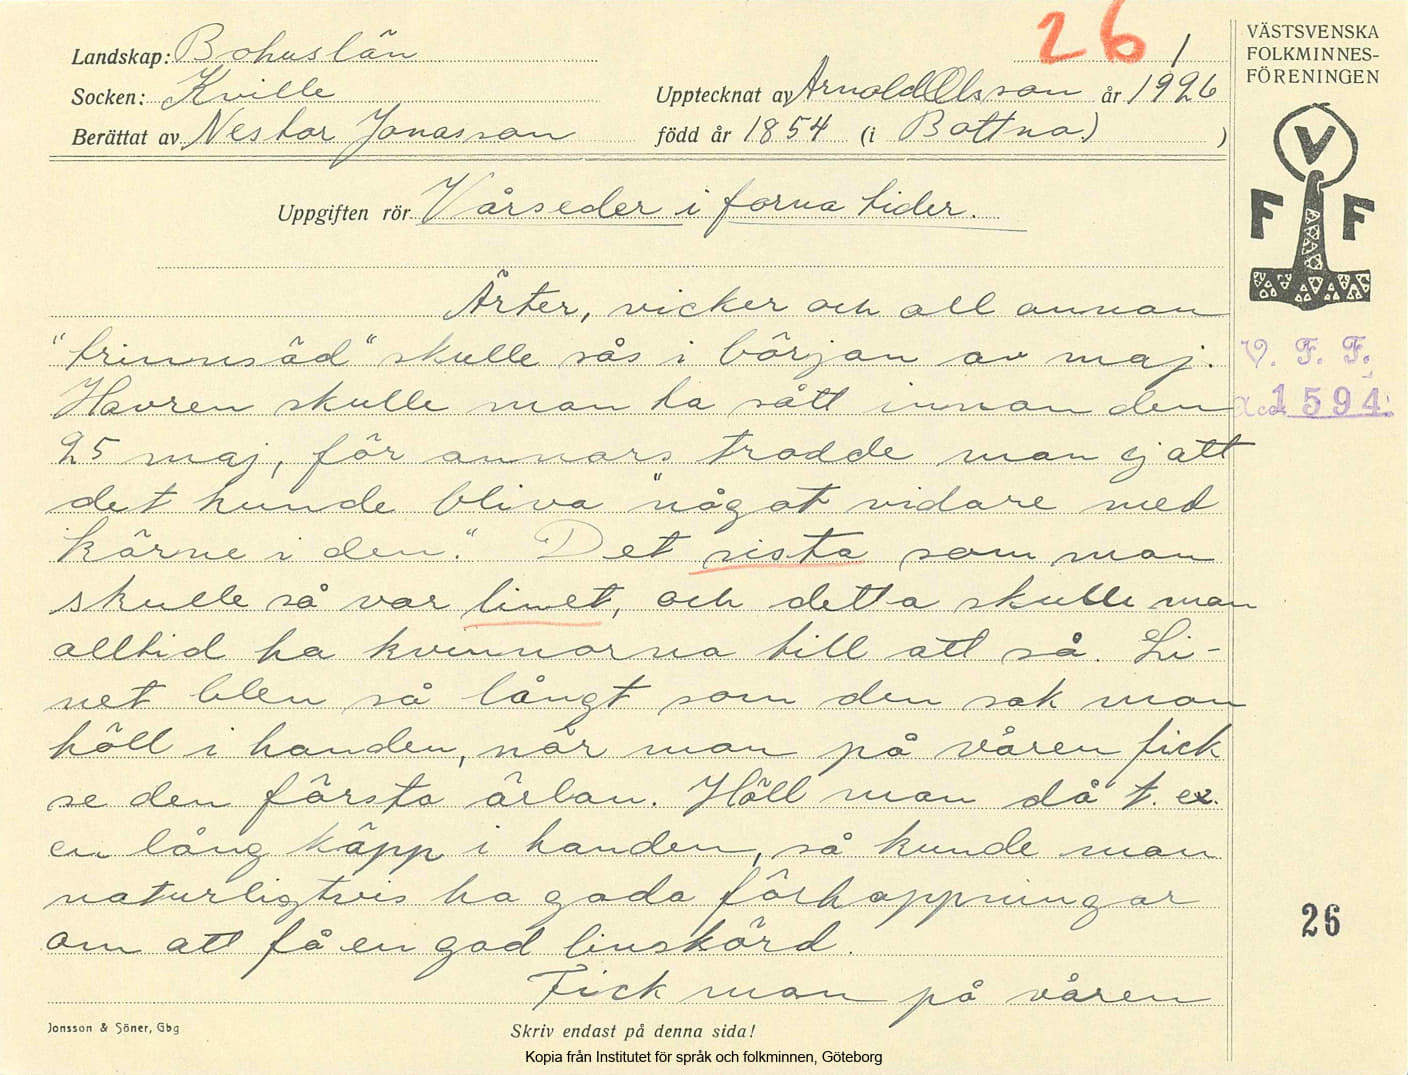 26
Landskap: Bohuslän 1 VÄSTSVENSKA
FOLKMINNES-
FÖRENINGEN
Socken: Kville Upptecknat av Arnold Olsson år 1926
Berättat av Nestor Jonasson född år 1854 (i Bottna) )
V
F F
Uppgiften rör Vårseder i forna tider.
Ärter, vicker och all annan
"trinnsäd" skulle sås i början av maj.
V. F. F.
Havren skulle man ha sått innan den
Acc. 1594
25 maj, för annars trodde man ej att
det kunde bliva "något vidare med
kärne i den." Det sista som man
skulle så var linet, och detta skulle man
alltid ha kvinnorna till att så. Li-
net blev så långt som den sak man
höll i handen, när man på våren fick
se den första ärlan. Höll man då t. ex.
en lång käpp i handen, så kunde man
naturligtvis ha goda förhoppningar
om att få en god linskörd.
26
Fick man på våren
Jonsson & Söner, Gbg
Skriv endast på denna sida!
Kopia från Institutet för språk och folkminnen, Göteborg